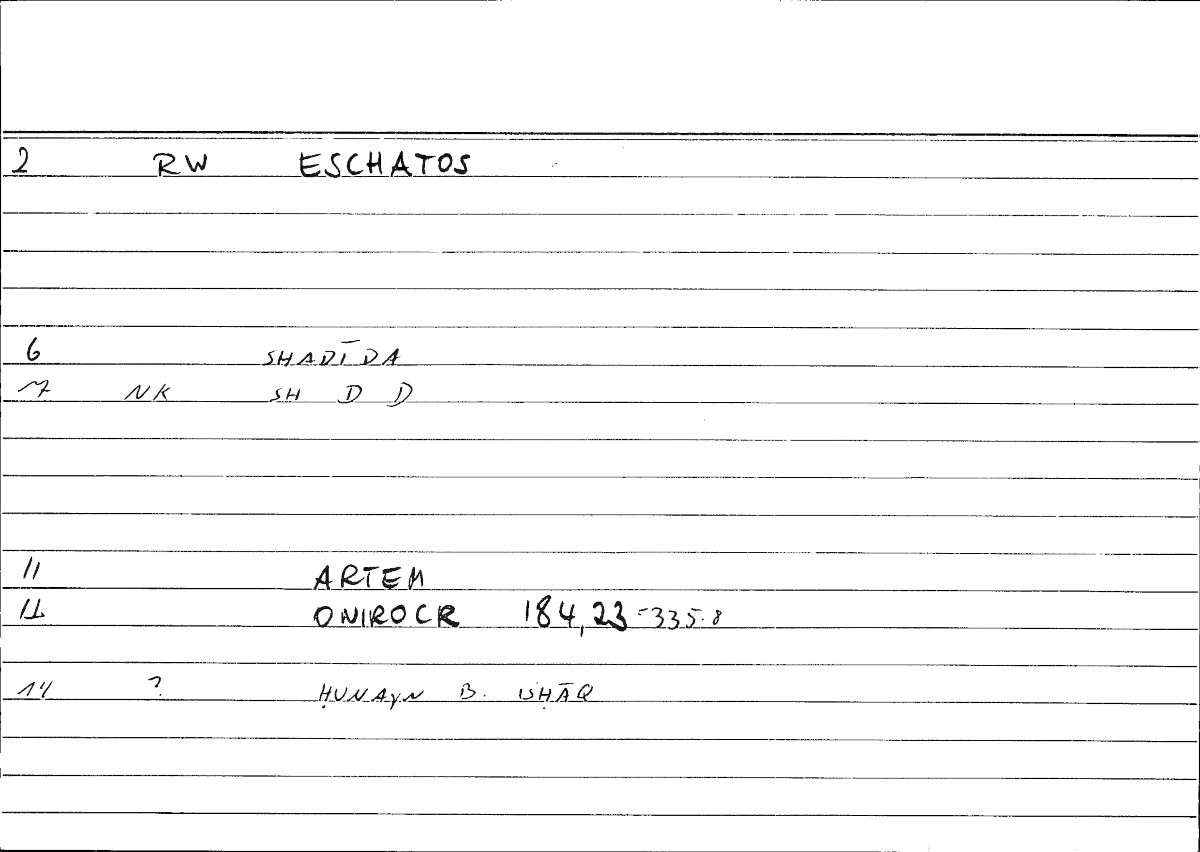 2 RW ESCHATOS
6 SHADĪDA
7 NK SH D D
11 ARTEM
12 ONIROCR 184,23-335.8
14 ? ḤUNAYN B. ISḤĀQ